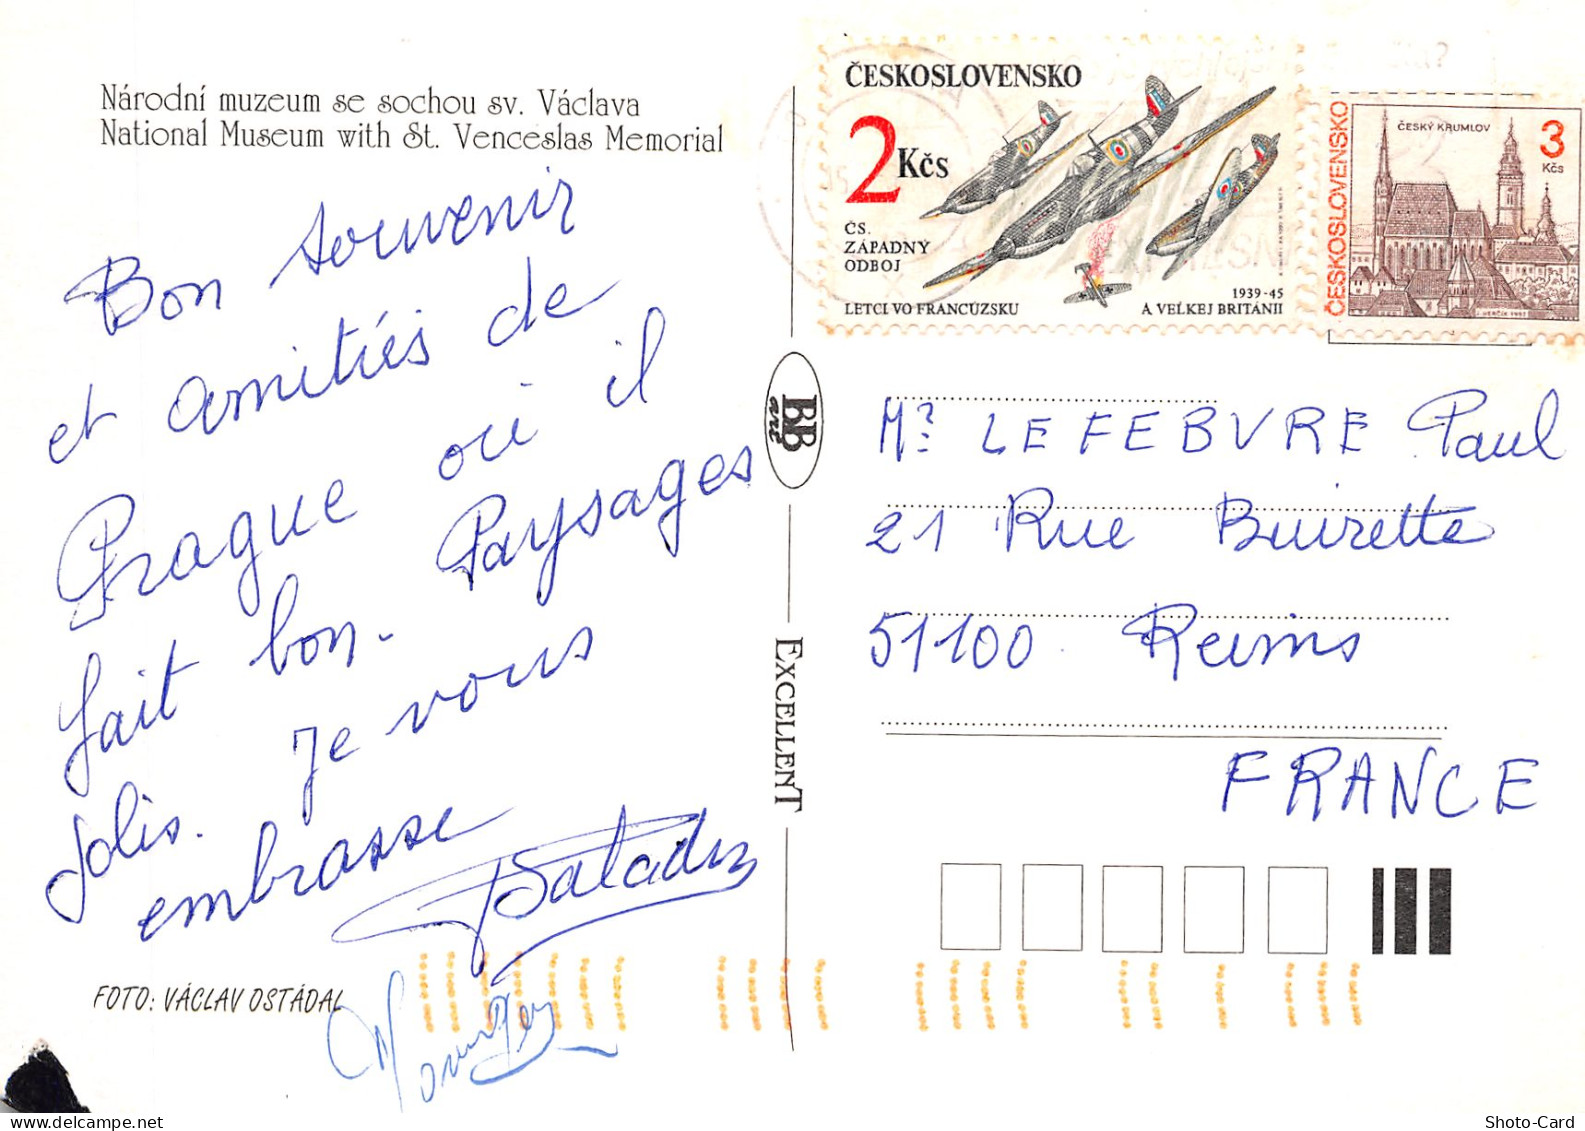 Národní muzeum se sochou sv. Václava
National Museum with St. Venceslas Memorial
Bon souvenir
et amitiés de
Prague où il
fait bon. Paysages
Jolis. Je vous
embrasse
FOTO: VÁCLAV OSTÁDAL
BB
art
EXCELLENT
ČESKOSLOVENSKO
2 Kčs
ČS.
ZÁPADNÝ
ODBOJ
1939-45
LETCI VO FRANCÚZSKU A VEĽKEJ BRITÁNII
ČESKOSLOVENSKO
ČESKÝ KRUMLOV
3
Kčs
Mr LEFEBVRE Paul
21 Rue Buirette
51100 Reims
FRANCE
Shoto-Card